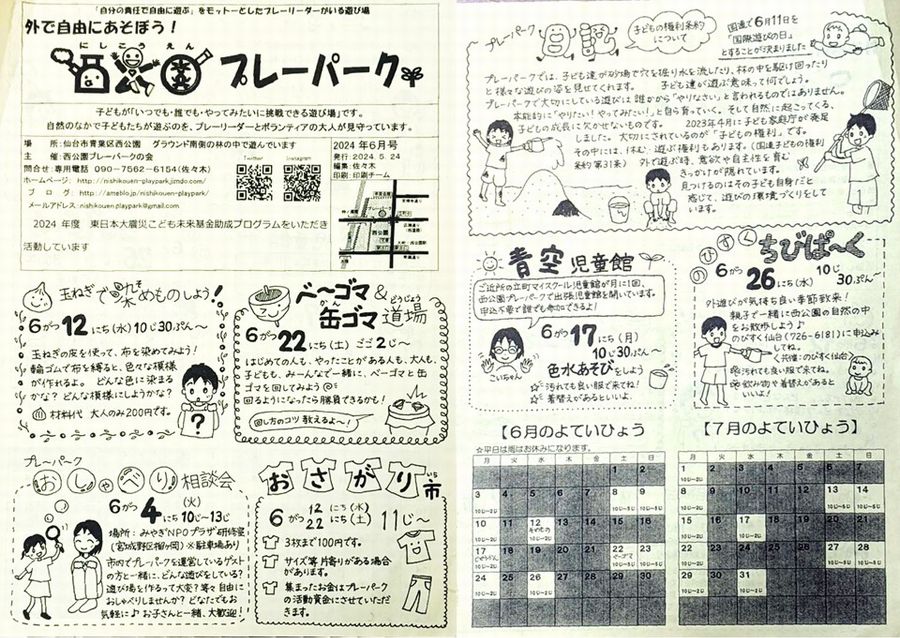 「自分の責任で自由に遊ぶ」をモットーとしたプレーリーダーがいる遊び場
外で自由にあそぼう！
にしこうえん
プレーパーク
子どもが「いつでも・誰でも・やってみたいに挑戦できる遊び場」です。
自然のなかで子どもたちが遊ぶのを、プレーリーダーとボランティアの大人が見守っています。
場　所：仙台市青葉区西公園　グラウンド南側の林の中で遊んでいます
主　催：西公園プレーパークの会
問合せ：専用電話　090-7562-6154(佐々木)
ホームページ：http://nishikouen-playpark.jimdo.com/
ブ ロ グ ：http://ameblo.jp/nishikouen-playpark/
メールアドレス：nishikouen.playpark@gmail.com
Twitter
Instagram
2024年6月号
発行：2024.5.24
編集：佐々木
印刷：印刷チーム
西公園
2024 年度　東日本大震災こども未来基金助成プログラムをいただき
活動しています
玉ねぎで布を染めものしよう！
6がつ12にち(水)10じ30ぷん～
玉ねぎの皮を使って、布を染めてみよう！
輪ゴムで布を縛ると、色々な模様
が作れるよ。どんな色に染まる
かな？どんな模様にしようかな？
材料代　大人のみ200円です。
?
ベーゴマ&
かん
缶ゴマ
どうじょう
道場
6がつ22にち(土)ごご2じ～
はじめての人も、やったことがある人も、大人も、
子どもも、みーんなで一緒に、ベーゴマと缶
ゴマを回してみよう@
回るようになったら勝負できるかも！
回し方のコツ教えるよ～！
プレーパーク
おしゃべり相談会
6がつ4にち(火)10じ～13じ
場所：みやぎNPOプラザ研修室
(宮城野区榴ヶ岡)※駐車場あり
市内でプレーパークを運営しているゲスト
の方と一緒に、どんな遊びをしている？
遊び場を作るって大変？等々自由に
おしゃべりしませんか？どなたでもお
気軽に♪お子さんと一緒、大歓迎！
おさがり市
いち
6がつ12にち(水)
22にち(土)
11じ～
3枚まで100円です。
サイズ等片寄りがある場合
があります。
集まったお金はプレーパーク
の活動資金にさせていただ
きます。
プレーパーク
日記
子どもの権利条約
について
国連で6月11日を
「国際遊びの日」
とすることが決まりました
プレーパークでは、子ども達が砂場で穴を掘り水を流したり、林の中を駆け回ったり
と様々な遊びの姿を見せてくれます。　子ども達が遊ぶ意味って何でしょう。
プレーパークで大切にしている遊びは誰かから「やりなさい」と言われるものではありません。
本能的に「やりたい！やってみたい！」と自ら育っていく。そして自然に起こってくる、
子どもの成長に欠かせないものです。　2023年4月に子ども家庭庁が発足
しました。大切にされているのが「子どもの権利」です。
その中には、休む・遊ぶ権利もあります。(国連子どもの権利
条約第31条)　外で遊ぶ時、意欲や自主性を育む
きっかけが隠れています。
見つけるのはその子ども自身だと
感じて、遊びの環境づくりをして
います。
青空児童館
ご近所の立町マイスクール児童館が月に1回、
西公園プレーパークで出張児童館を開いています。
申込不要で誰でも参加できるよ！
6がつ17にち(月)
10じ30ぷん～
色水あそびをしよう
こいちゃん
汚れても良い服で来てね！
着替えがあるといいよ。
のびすくちびぱ～く
6がつ26にち(水)10じ
30ぷん～
外遊びが気持ち良い季節到来！
親子で一緒に西公園の自然の中
をお散歩しよう♪
のびすく仙台(726-6181)に申込み
してね。
＜共催：のびすく仙台＞
汚れても良い服で来てね。
飲み物や着替えがあると
いいよ！
【6月のよていひょう
☆平日は雨はお休みになります。
月 火 水 木 金 土 日
1 2
3 4 5 6 7 8 9
10 11 12 13 14 15 16
17 18 19 20 21 22 23
24 25 26 27 28 29 30
【7月のよていひょう】
月 火 水 木 金 土 日
1 2 3 4 5 6 7
8 9 10 11 12 13 14
15 16 17 18 19 20 21
22 23 24 25 26 27 28
29 30 31